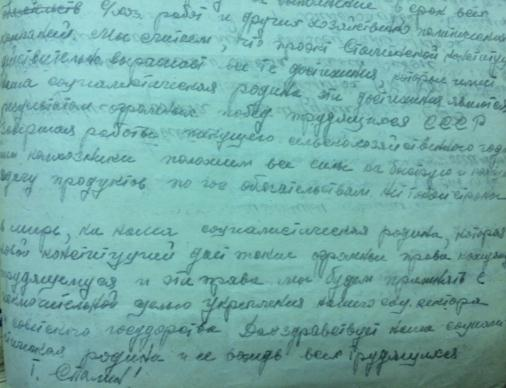 с/хоз. работ и других хозяйственно политических
кампаний. Мы считаем, что проект Сталинской конституции
действительно выражает все те достижения которые имеет
наша социалистическая родина эти достижения являются
результатом огромных побед трудящихся СССР
Завершая работы текущего сельскохозяйственного года
мы колхозники положим все силы на быструю и
сдачу продуктов по гос обязательствам.
в мире, как наша социалистическая родина, которая
новой конституцией дает такие огромные права каждому
трудящемуся и эти права мы будем применять с
целью укрепления нашего соц. сектора
и советского государства Да здравствует наша социали
стическая родина и ее вождь всех трудящихся
Т. Сталин!